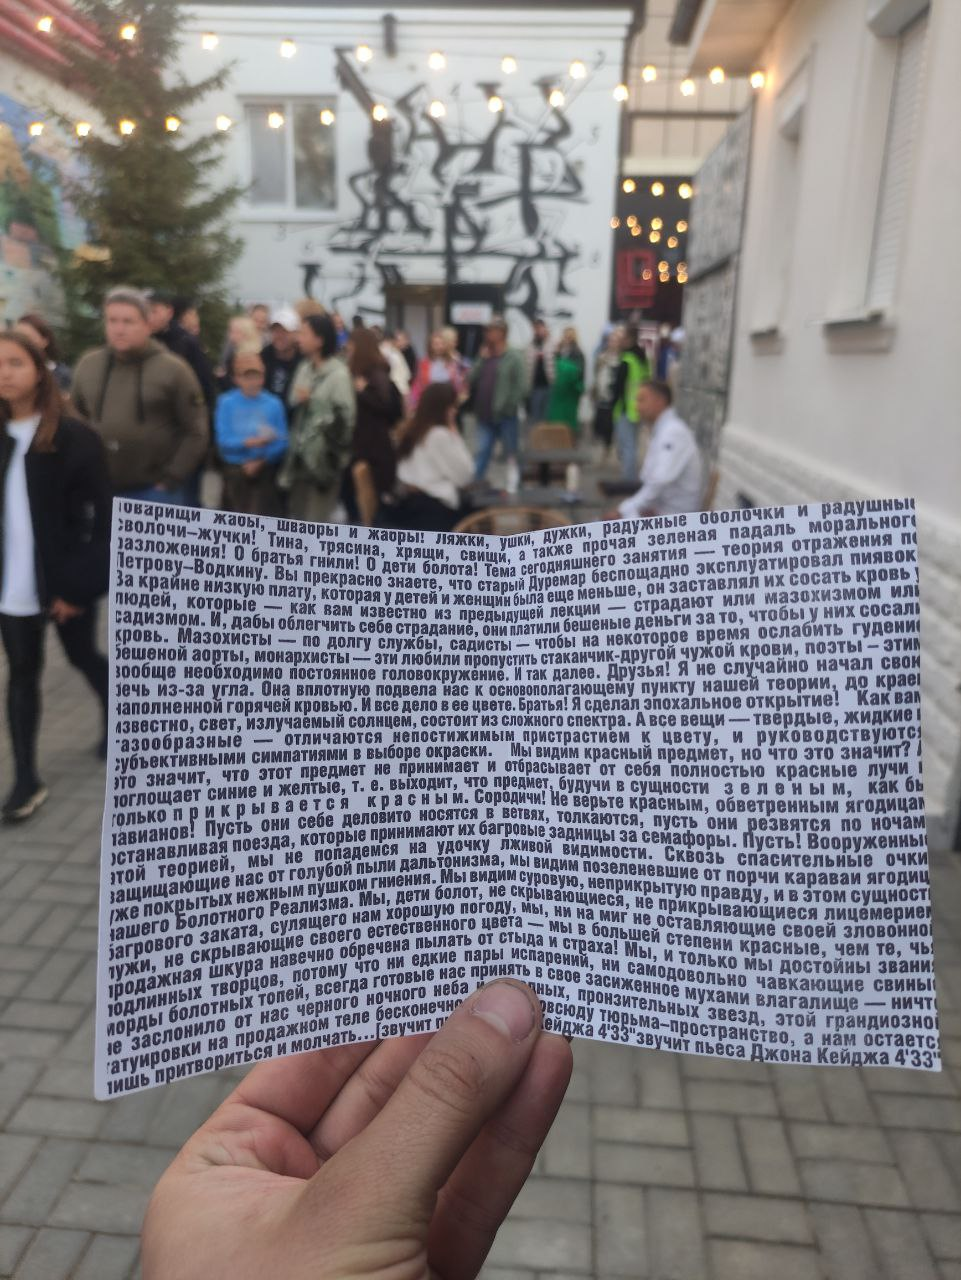 товарищи жабы, швабры и жаоры! Ляжки, ушки, дужки, радужные оболочки и радушны
сволочи–жучки! Тина, трясина, хрящи, свищи, а также прочая зеленая падаль моральног
разложения! О братья гнили! О дети болота! Тема сегодняшнего занятия — теория отражения п
Петрову–Водкину. Вы прекрасно знаете, что старый Дуремар беспощадно эксплуатировал пиявок
За крайне низкую плату, которая у детей и женщин была еще меньше, он заставлял их сосать кровь
людей, которые — как вам известно из предыдущей лекции — страдают или мазохизмом или
садизмом. И, дабы облегчить себе страдание, они платили бешеные деньги за то, чтобы у них сосал
кровь. Мазохисты — по долгу службы, садисты — чтобы на некоторое время ослабить гудени
бешеной аорты, монархисты — эти любили пропустить стаканчик-другой чужой крови, поэты – этим
вообще необходимо постоянное головокружение. И так далее. Друзья! Я не случайно начал свою
речь из-за угла. Она вплотную подвела нас к основополагающему пункту нашей теории, до крае
наполненной горячей кровью. И все дело в ее цвете. Братья! Я сделал эпохальное открытие! Как вам
известно, свет, излучаемый солнцем, состоит из сложного спектра. А все вещи — твердые, жидкие
газообразные — отличаются непостижимым пристрастием к цвету, и руководствуютс
субъективными симпатиями в выборе окраски. Мы видим красный предмет, но что это значит?
это значит, что этот предмет не принимает и отбрасывает от себя полностью красные лучи
поглощает синие и желтые, т. е. выходит, что предмет, будучи в сущности зеленым, как бы
только прикрывается красным. Сородичи! Не верьте красным, обветренным ягодицам
павианов! Пусть они себе деловито носятся в ветвях, толкаются, пусть они резвятся по ночам
останавливая поезда, которые принимают их багровые задницы за семафоры. Пусть! Вооруженны
этой теорией, мы не попадемся на удочку лживой видимости. Сквозь спасительные очки
защищающие нас от голубой пыли дальтонизма, мы видим позеленевшие от порчи караваи ягодиц
уже покрытых нежным пушком гниения. Мы видим суровую, неприкрытую правду, и в этом сущност
нашего Болотного Реализма. Мы, дети болот, не скрывающиеся, не прикрывающиеся лицемерием
багрового заката, сулящего нам хорошую погоду, мы, ни на миг не оставляющие своей зловонной
лужи, не скрывающие своего естественного цвета — мы в большей степени красные, чем те, чья
продажная шкура навечно обречена пылать от стыда и страха! Мы, и только мы достойны звани
подлинных творцов, потому что ни едкие пары испарений, ни самодовольно чавкающие свиные
морды болотных топей, всегда готовые нас принять в свое засиженное мухами влагалище — ничто
не заслонило от нас черного ночного неба и дных, пронзительных звезд, этой грандиозной
татуировки на продажном теле бесконечно овсюду тюрьма–пространство, а нам остаетс
лишь притвориться и молчать...[звучит п ейджа 4'33"звучит пьеса Джона Кейджа 4'33"